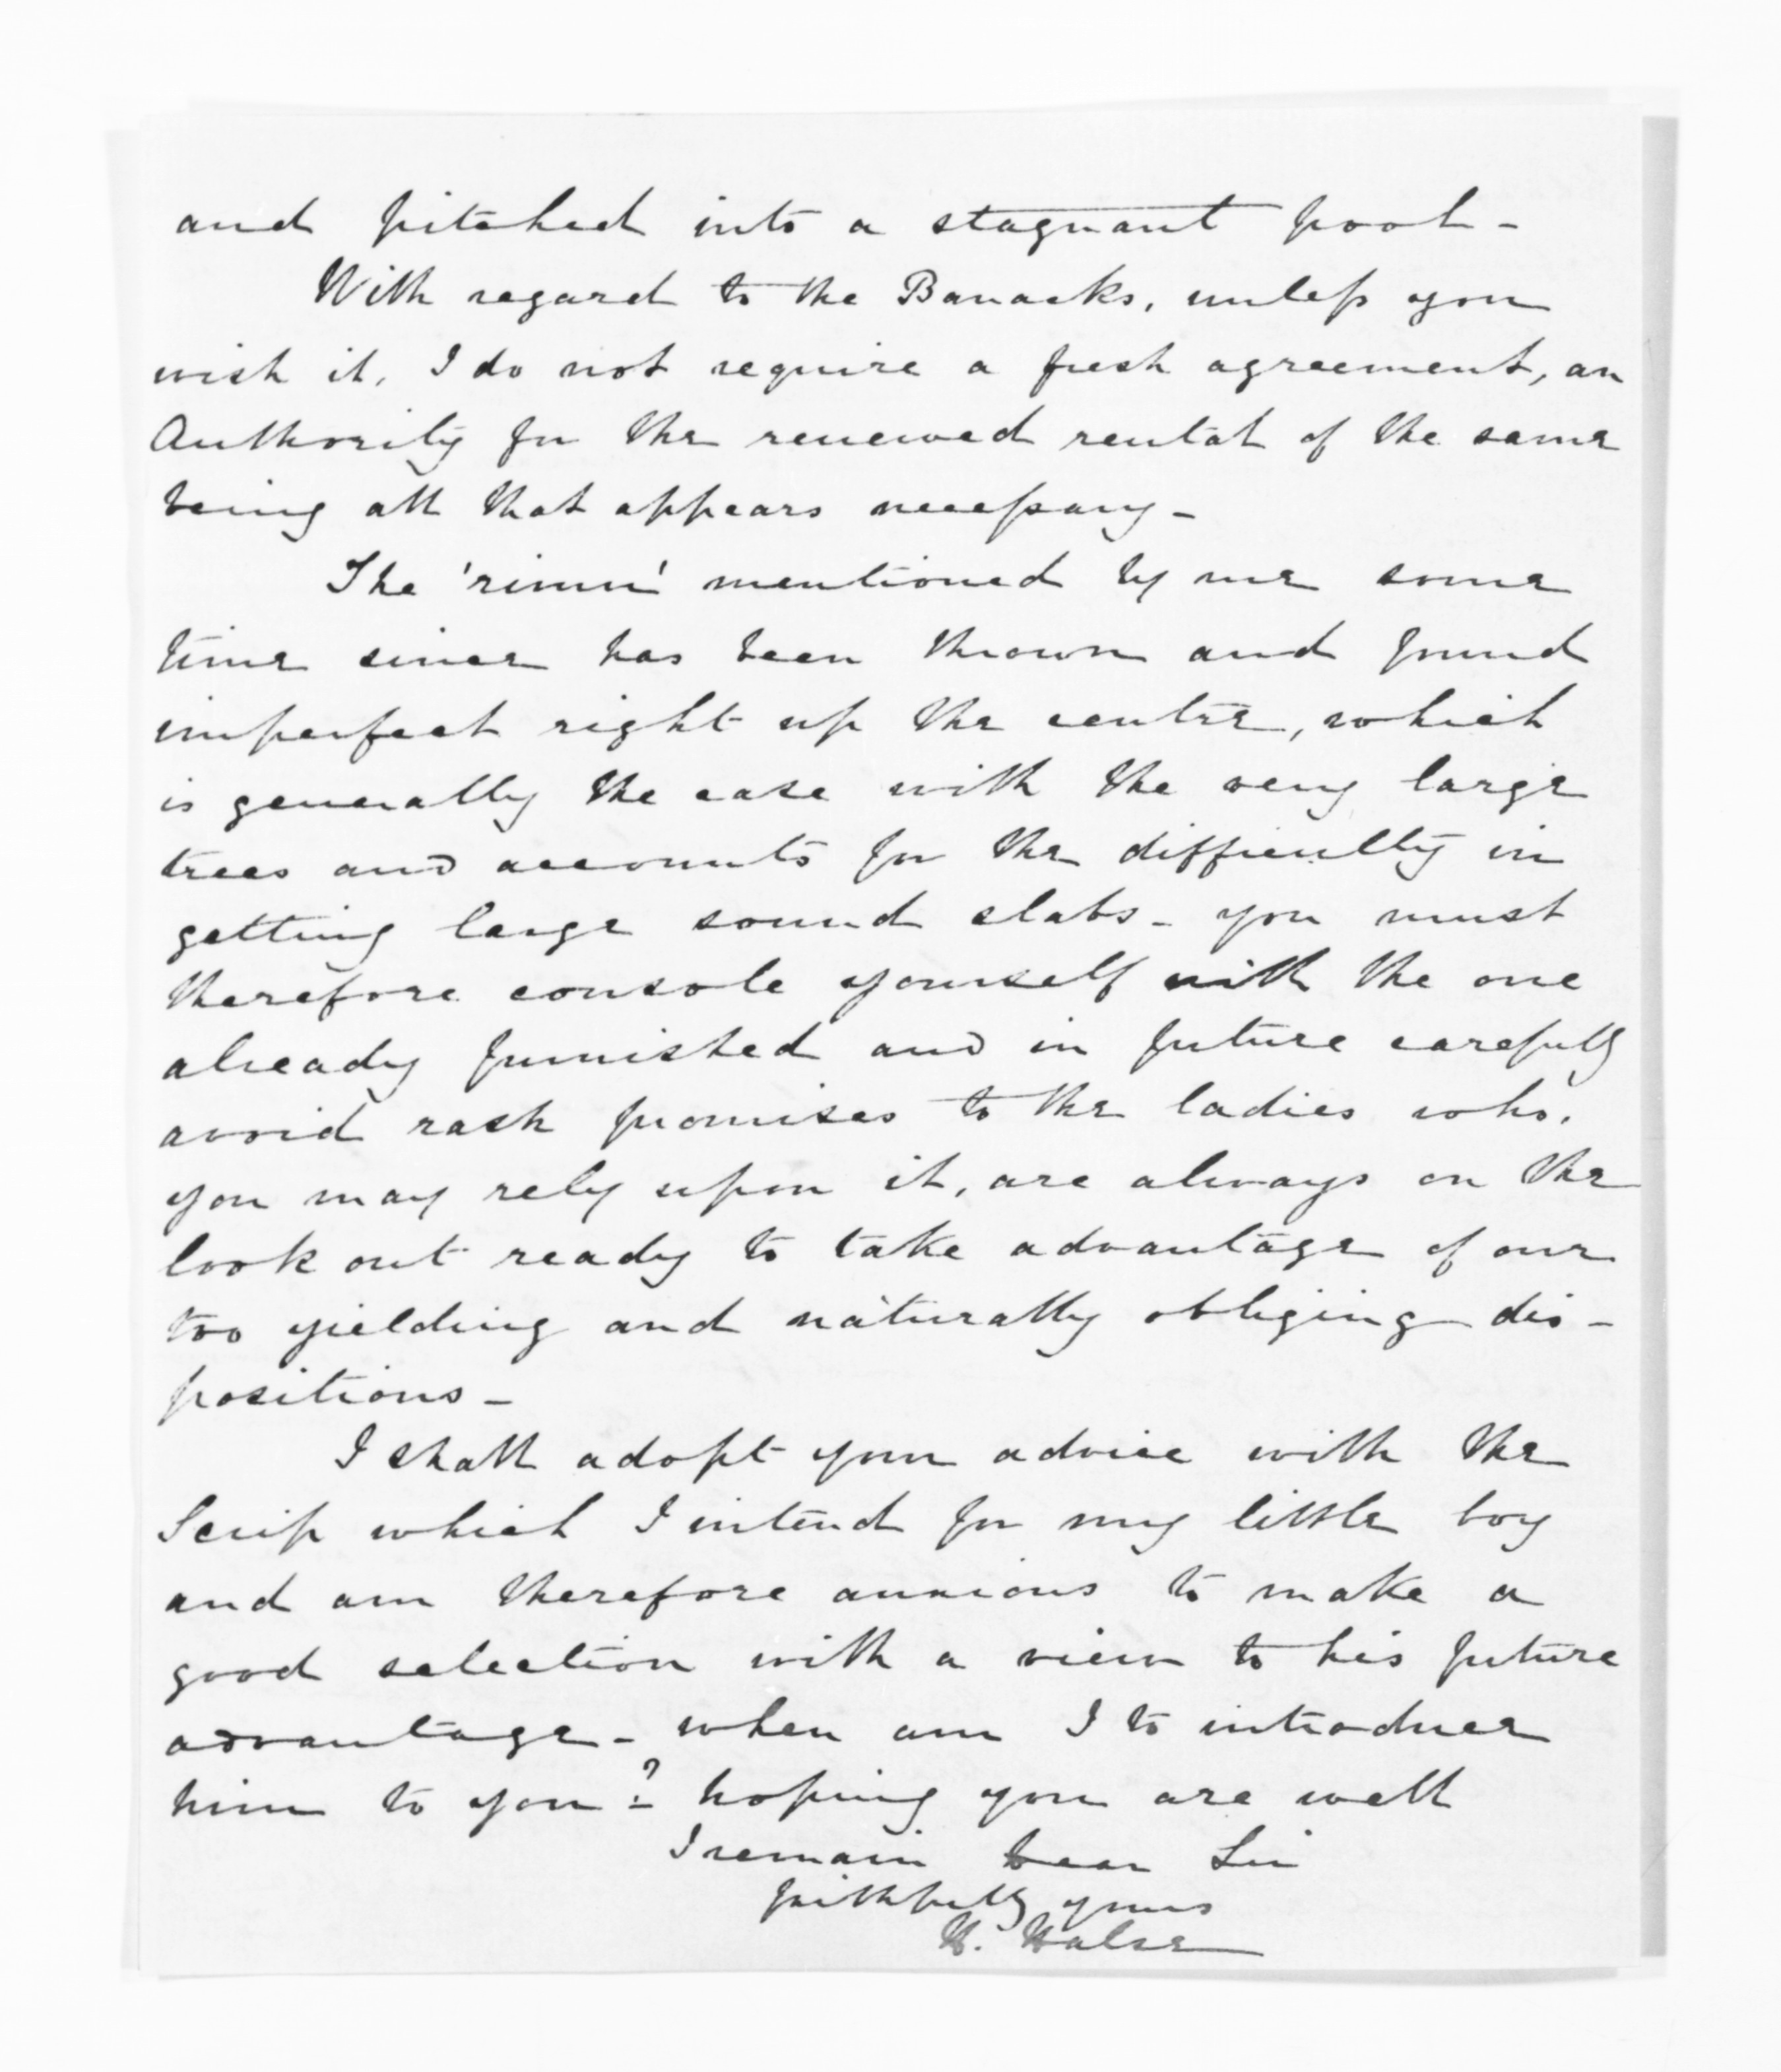 and pitched into a stagnant pool -
With regard to the Barracks, unless you
wish it, I do not require a fresh agreement, an
Authority for the renewed rental of the same
being all that appears necessary -
The 'rimu' mentioned by me some
time since has been thrown and found
imperfect right up the centre, which
is generally the case with the very large
trees and accounts for the difficulty in
getting large sound slabs - you must
therefore console yourself with the one
already furnished and in future carefully
avoid rash promises to the ladies who,
you may rely upon it, are always on the
look out ready to take advantage of our
too yielding and naturally obliging dis-
positions -
I shall adopt your advice with the
Scrip which I intend for my little boy
and am therefore anxious to make a
good selection with a view to his future
advantage - when am I to introduce
him to you? - hoping you are well
I remain Dear Sir
faithfully yours
H. Halse